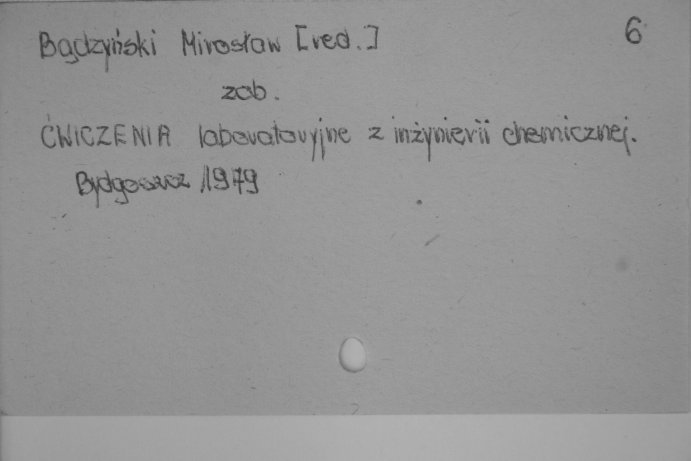 Bądzyński Mirosław [red.] 6
zob.
ĆWICZENIA laboratoryjne z inżynierii chemicznej.
Bydgoszcz 1979